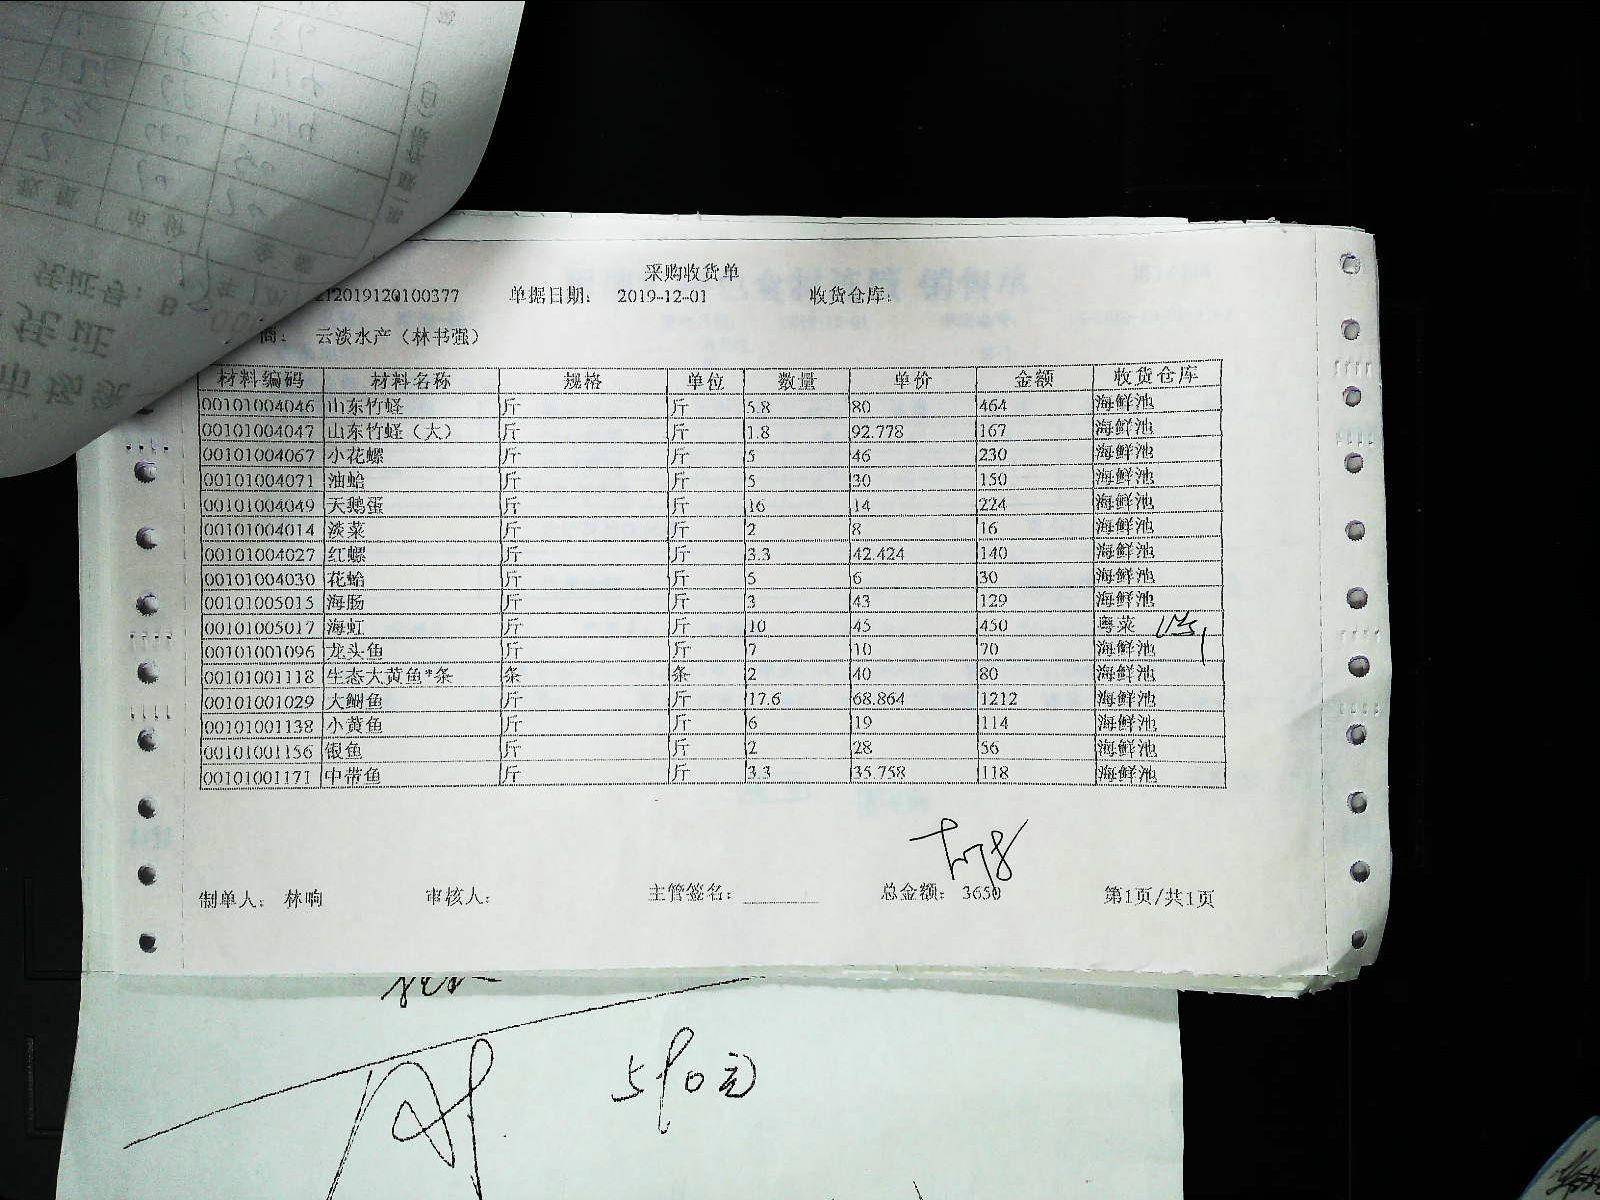 采购收货单
212019120100377 单据日期： 2019-12-01 收货仓库：
商： 云淡水产（林书强）
材料编码 材料名称 规格 单位 数量 单价 金额 收货仓库
00101004046 山东竹蛏 斤 斤 5.8 80 464 海鲜池
00101004047 山东竹蛏（大） 斤 斤 1.8 92.778 167 海鲜池
00101004067 小花螺 斤 斤 5 46 230 海鲜池
00101004071 油蛤 斤 斤 5 30 150 海鲜池
00101004049 天鹅蛋 斤 斤 16 14 224 海鲜池
00101004014 淡菜 斤 斤 2 8 16 海鲜池
00101004027 红螺 斤 斤 3.3 42.424 140 海鲜池
00101004030 花蛤 斤 斤 5 6 30 海鲜池
00101005015 海肠 斤 斤 3 43 129 海鲜池
00101005017 海虹 斤 斤 10 45 450 粤菜
00101001096 龙头鱼 斤 斤 7 10 70 海鲜池
00101001118 生态大黄鱼*条 条 条 2 40 80 海鲜池
00101001029 大鲴鱼 斤 斤 17.6 68.864 1212 海鲜池
00101001138 小黄鱼 斤 斤 6 19 114 海鲜池
00101001156 银鱼 斤 斤 2 28 56 海鲜池
00101001171 中带鱼 斤 斤 3.3 35.758 118 海鲜池
制单人： 林响 审核人： 主管签名： 总金额： 3650 第1页/共1页
590元